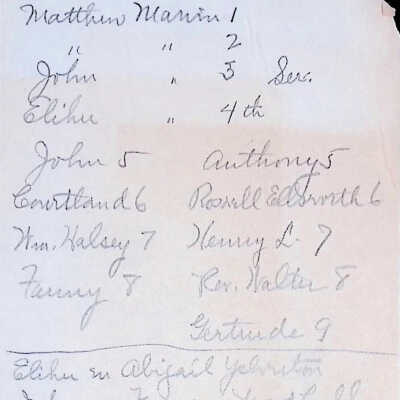 Matthew Marvin 1
" " 2
John " 3 Ser.
Elihu " 4th
John 5 Anthony 5
Courtland 6 Roswell Ellsworth 6
Wm. Halsey 7 Henry L. 7
Fanny 8 Rev. Walter 8
Gertrude 9
Elihu m Abigail Yelverton
John